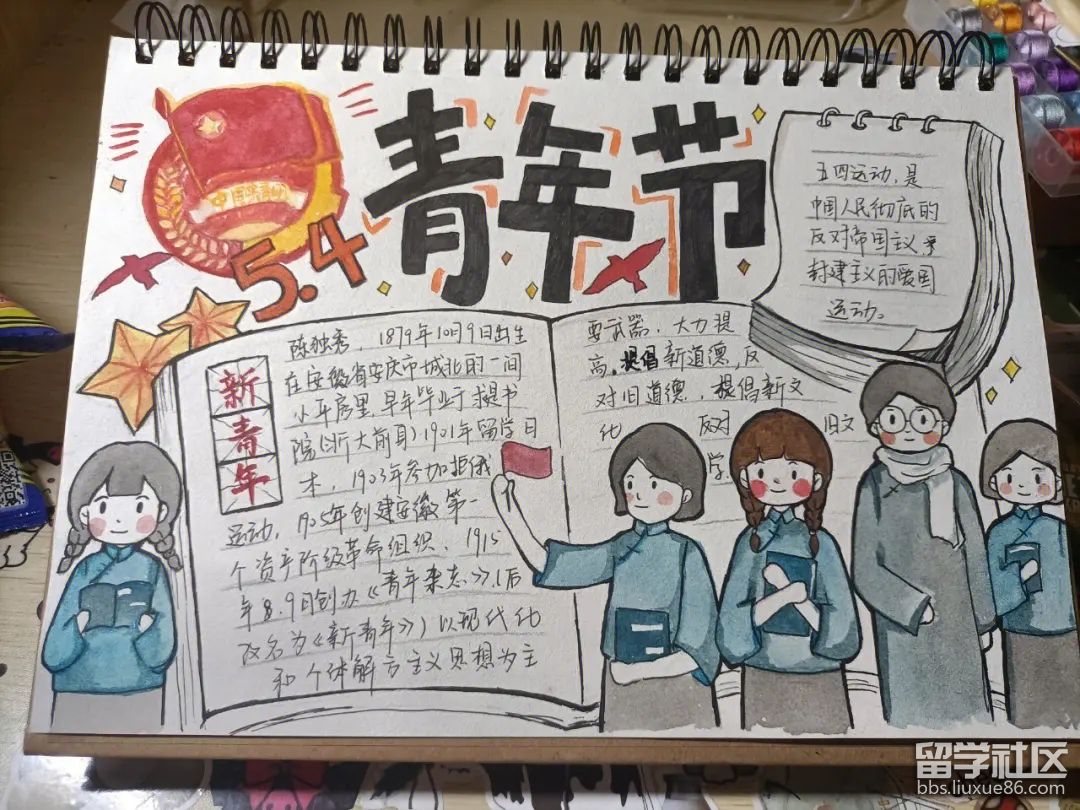 青年节
5.4
五四运动,是
中国人民彻底的
反对帝国主义
封建主义的爱国
运动。
新
青
年
陈独秀,1879年10月9日出生
在安徽省安庆市城北的一间
小平房里,早年毕业于求是书
院(浙大前身)1901年留学日
本,1903年参加拒俄
运动,1905年创建安徽第一
个资产阶级革命组织,1915
年8.9月创办《青年杂志》,(后
改名为《新青年》)以现代化
和个体解方主义思想为主
要武器,大力提
高,提倡新道德,反
对旧道德,提倡新文
化 反对 旧文
学.
留学社区
bbs.liuxue86.com